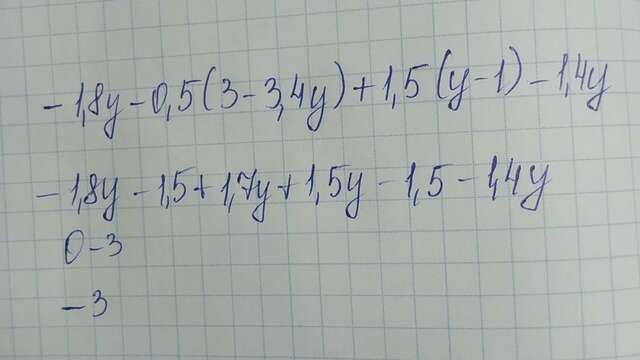 -1,8y-0,5(3-3,4y)+1,5(y-1)-1,4y
-1,8y-1,5+1,7y+1,5y-1,5-1,4y
0-3
-3